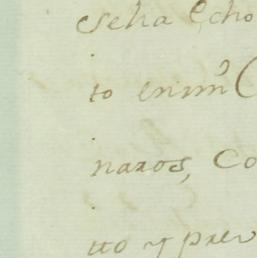 se ha Echo
to enim
naros, Co
tto y prev